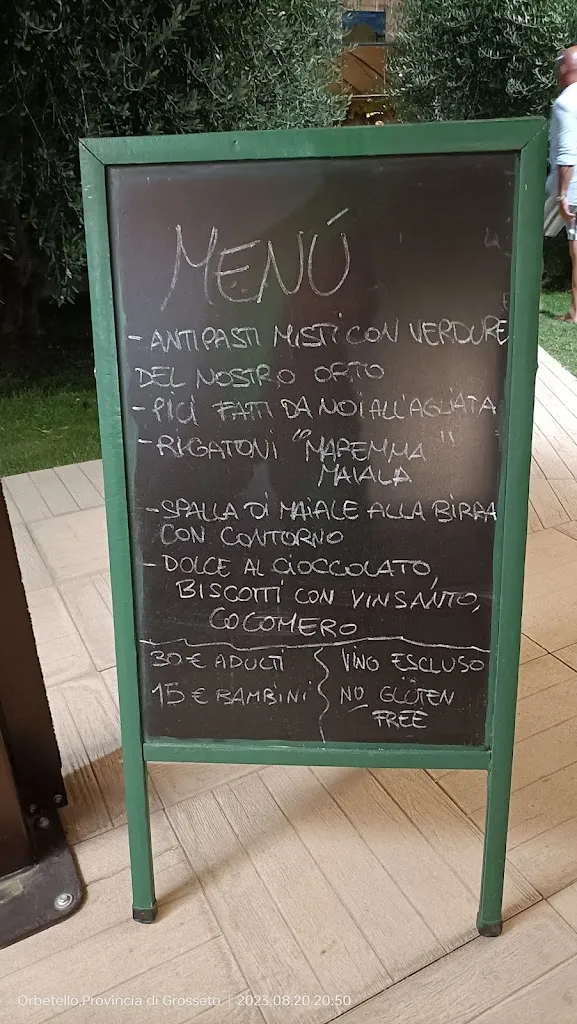 MENÚ
- ANTIPASTI MISTI CON VERDURE
DEL NOSTRO ORTO
- PICI FATTI DA NOI ALL'AGLIATA
- RIGATONI "MAREMMA"
MAIALA
- SPALLA DI MAIALE ALLA BIRRA
CON CONTORNO
- DOLCE AL CIOCCOLATO,
BISCOTTI CON VINSANTO,
COCOMERO
30€ ADULTI
15€ BAMBINI
VINO ESCLUSO
NO GLUTEN
FREE
Orbetello,Provincia di Grosseto | 2023.08.20 20:50